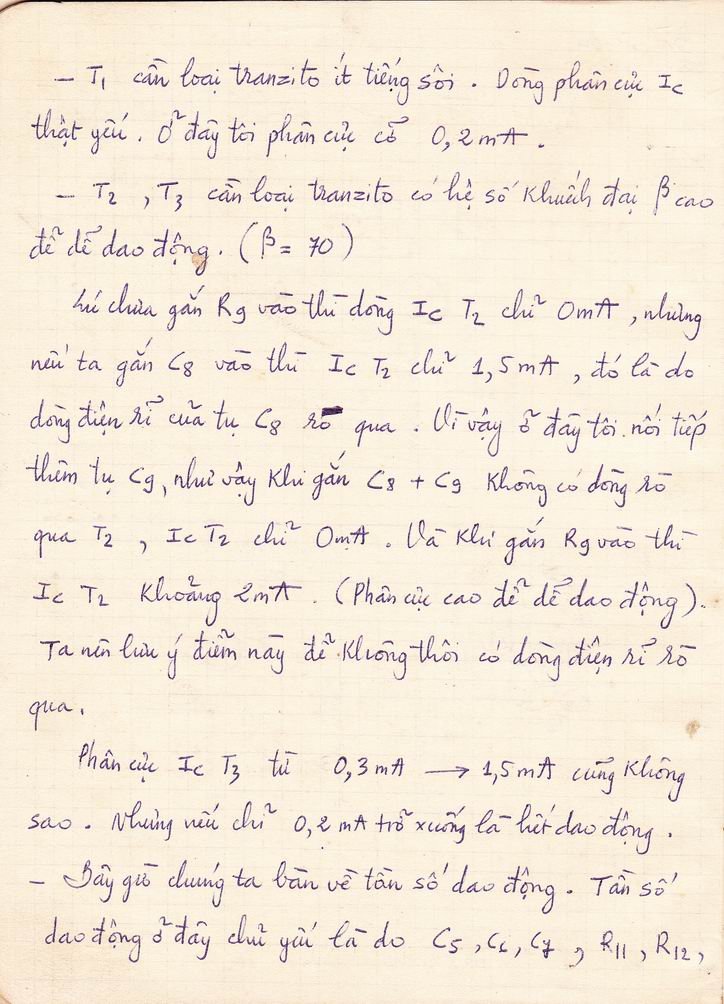 - T₁ cần loại tranzito ít tiếng sôi. Dòng phân cực Ic
thật yếu. Ở đây tôi phân cực cỡ 0,2mA.
- T₂, T₃ cần loại tranzito có hệ số khuếch đại β cao
để dễ dao động. (β = 70)
Lúc chưa gắn R9 vào thì dòng Ic T₂ chỉ 0mA, nhưng
nếu ta gắn C8 vào thì Ic T₂ chỉ 1,5mA, đó là do
dòng điện rỉ của tụ C8 rò qua. Vì vậy ở đây tôi nối tiếp
thêm tụ C9, như vậy khi gắn C8 + C9 không có dòng rò
qua T₂, Ic T₂ chỉ 0mA. Và khi gắn R9 vào thì
Ic T₂ khoảng 2mA. (Phân cực cao để dễ dao động).
Ta nên lưu ý điểm này để không thôi có dòng điện rỉ rò
qua.
Phân cực Ic T₃ từ 0,3mA → 1,5mA cũng không
sao. Nhưng nếu chỉ 0,2mA trở xuống là hết dao động.
- Bây giờ chúng ta bàn về tần số dao động. Tần số
dao động ở đây chủ yếu là do C5, C6, C7, R11, R12,